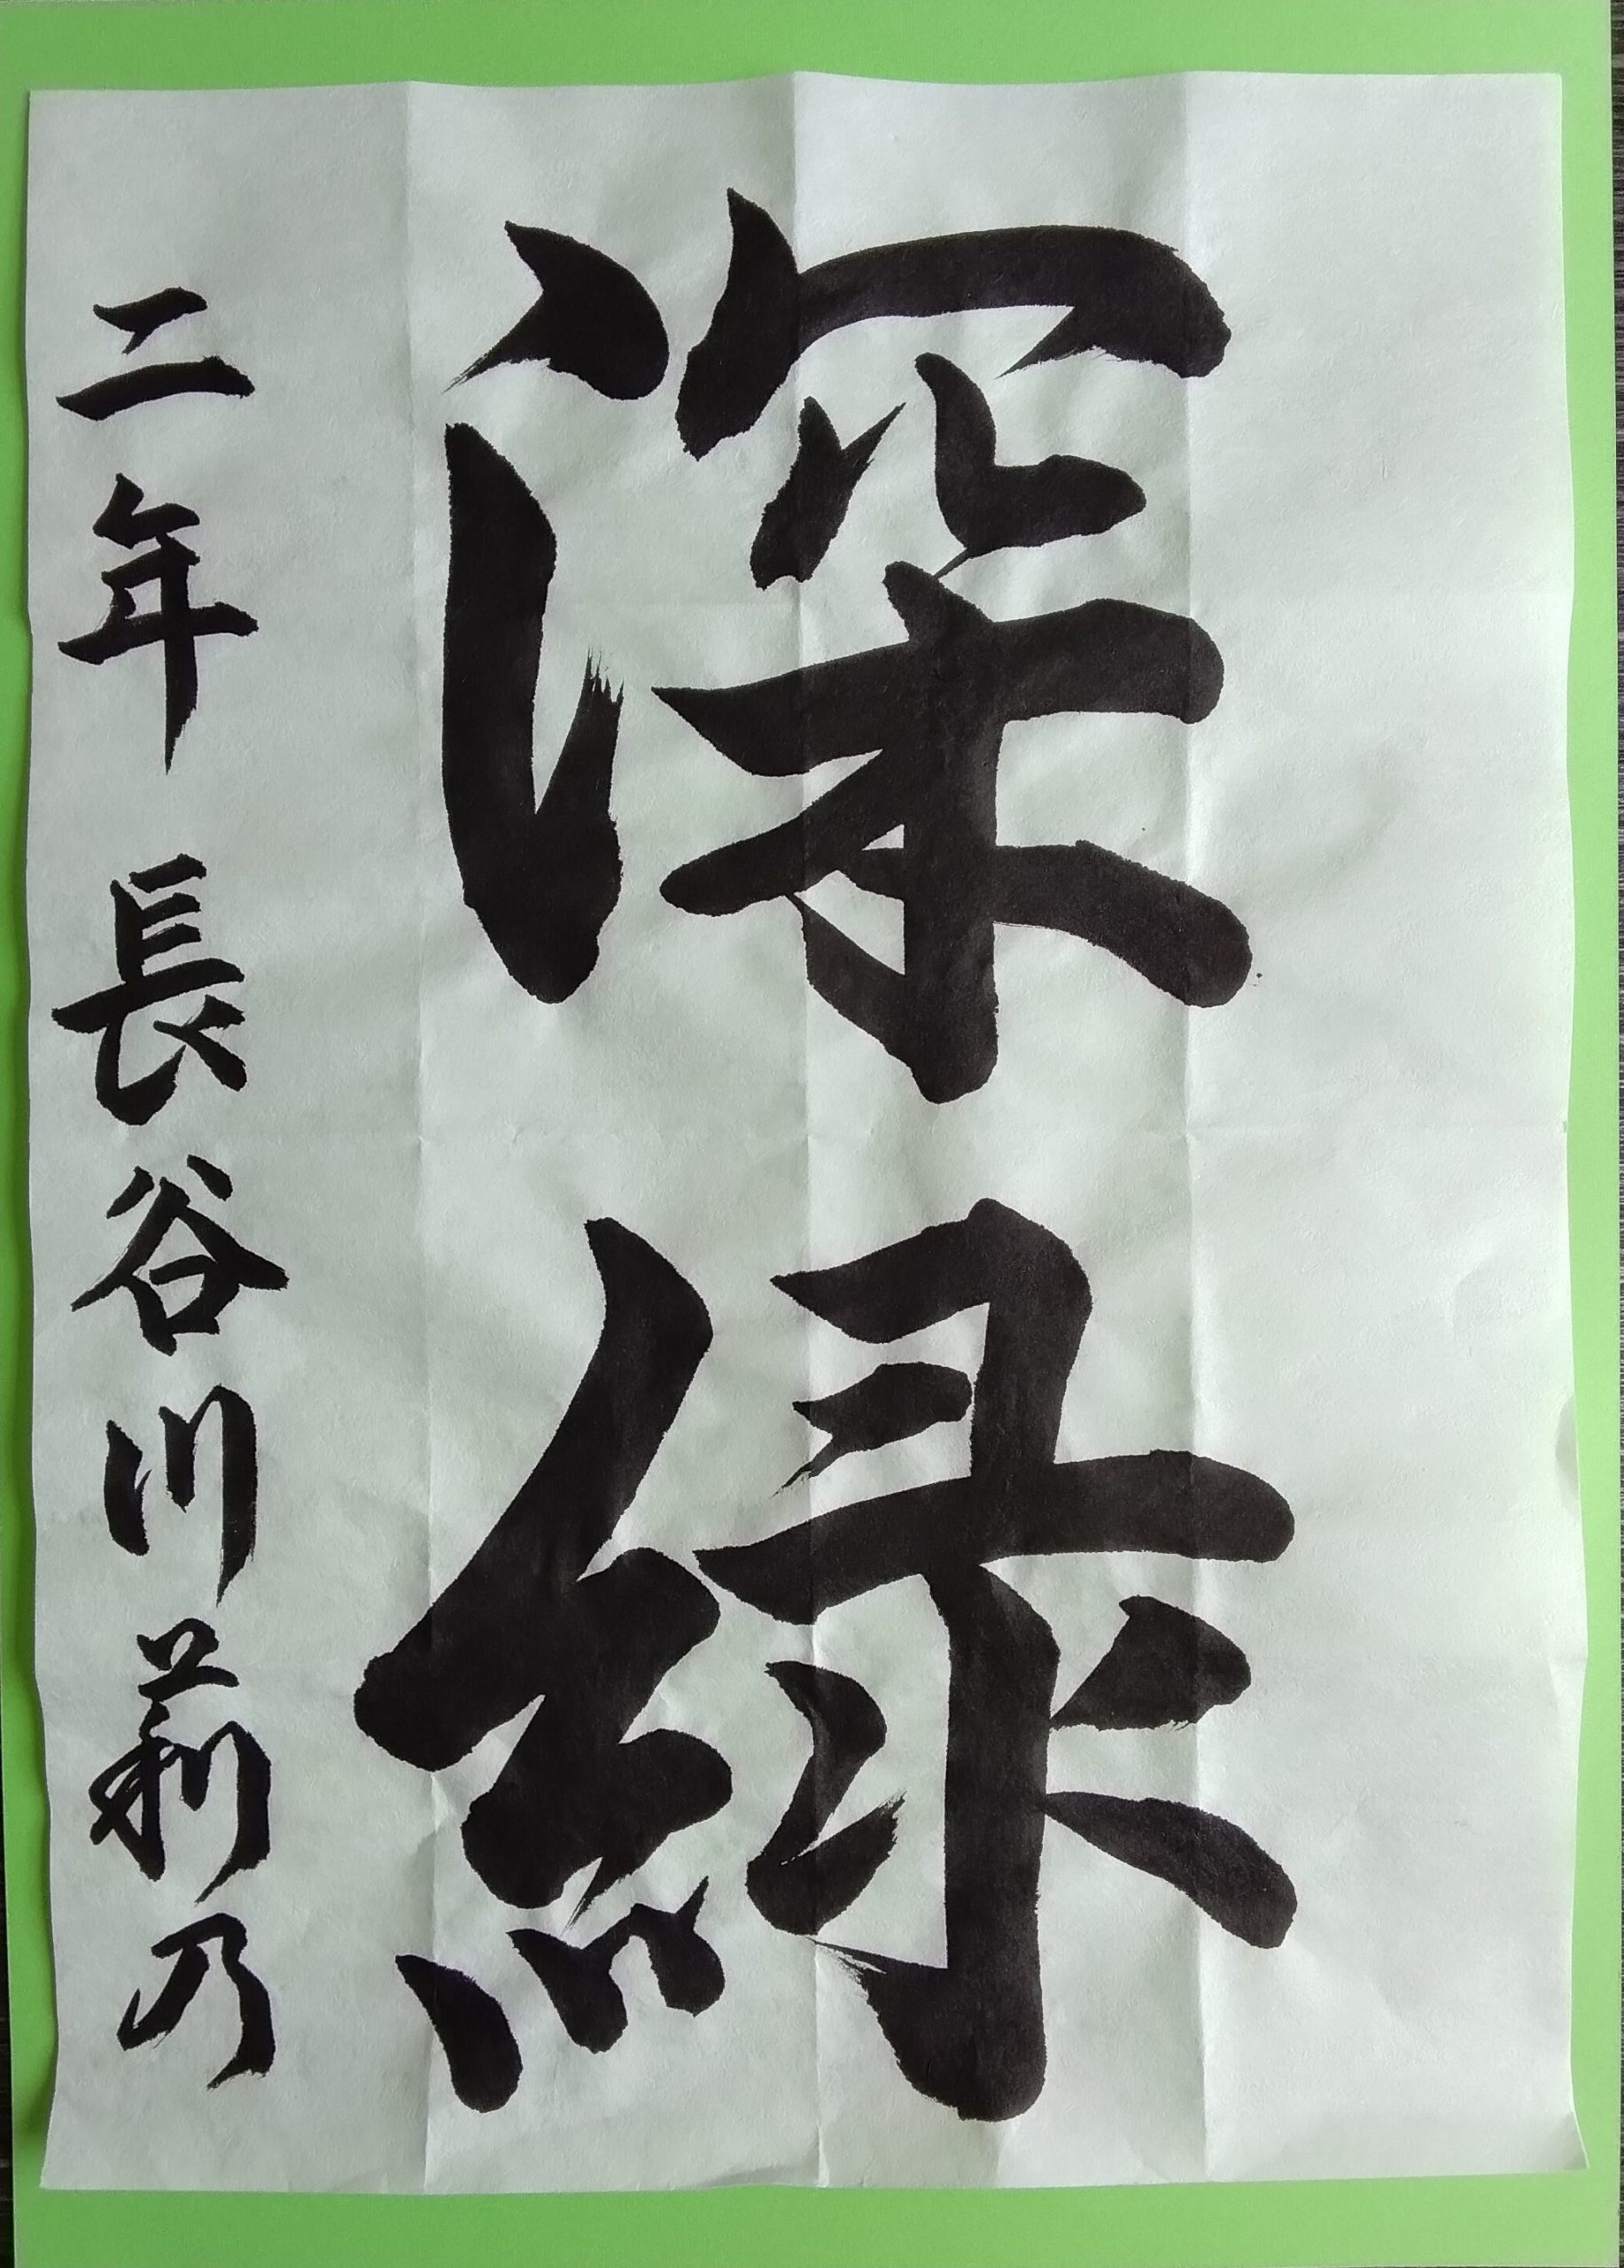 深緑
二年 長谷川莉乃